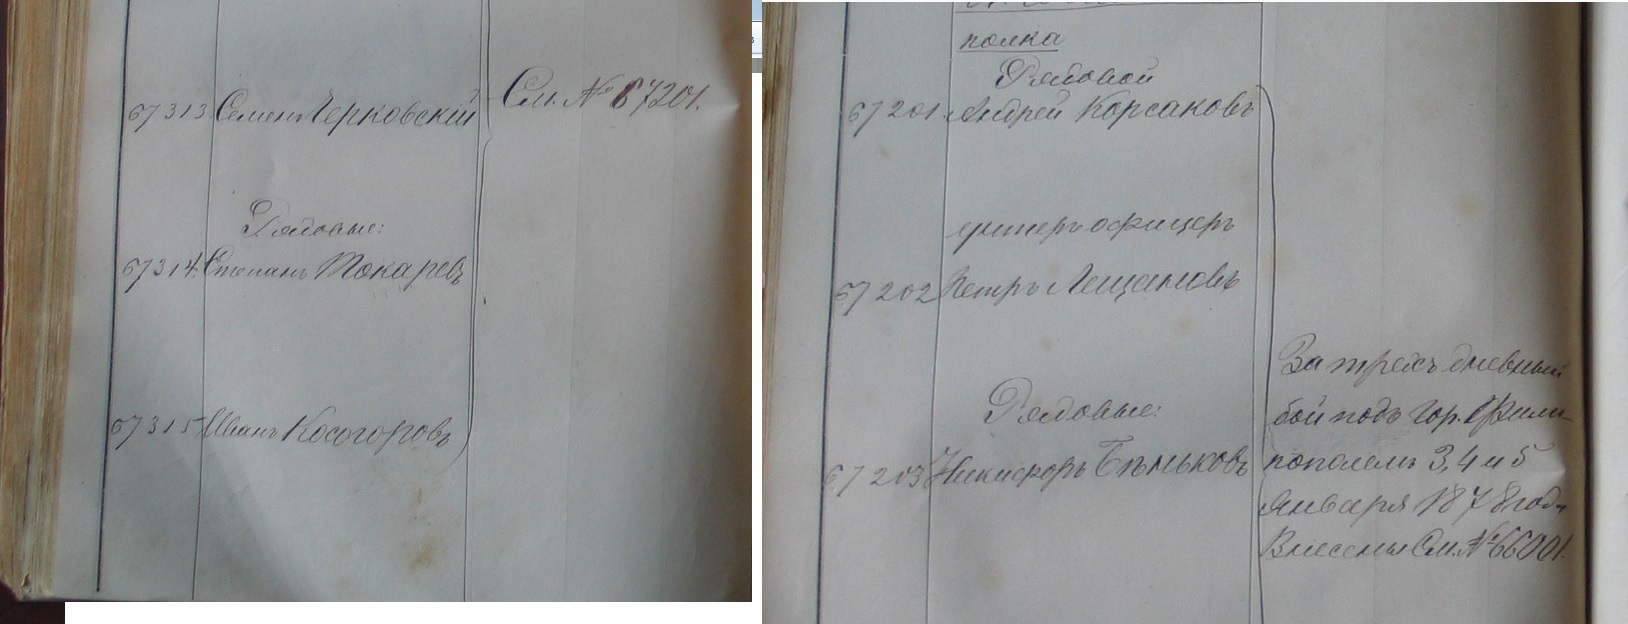 67313. Семенъ Черковскій
См. № 67201.
Рядовые:
67314. Степанъ Токаревъ
67315. Иванъ Косогоровъ
полка
Рядовой
67201. Андрей Корсаковъ
унтеръ офицеръ
67202 Петръ Лещановъ
Рядовые:
67203 Никифоръ Беньковъ
За трехъ дневный
бой подъ гор. Фили-
пополемъ 3, 4 и 5
Января 1878 года
Внесены См. № 66001.